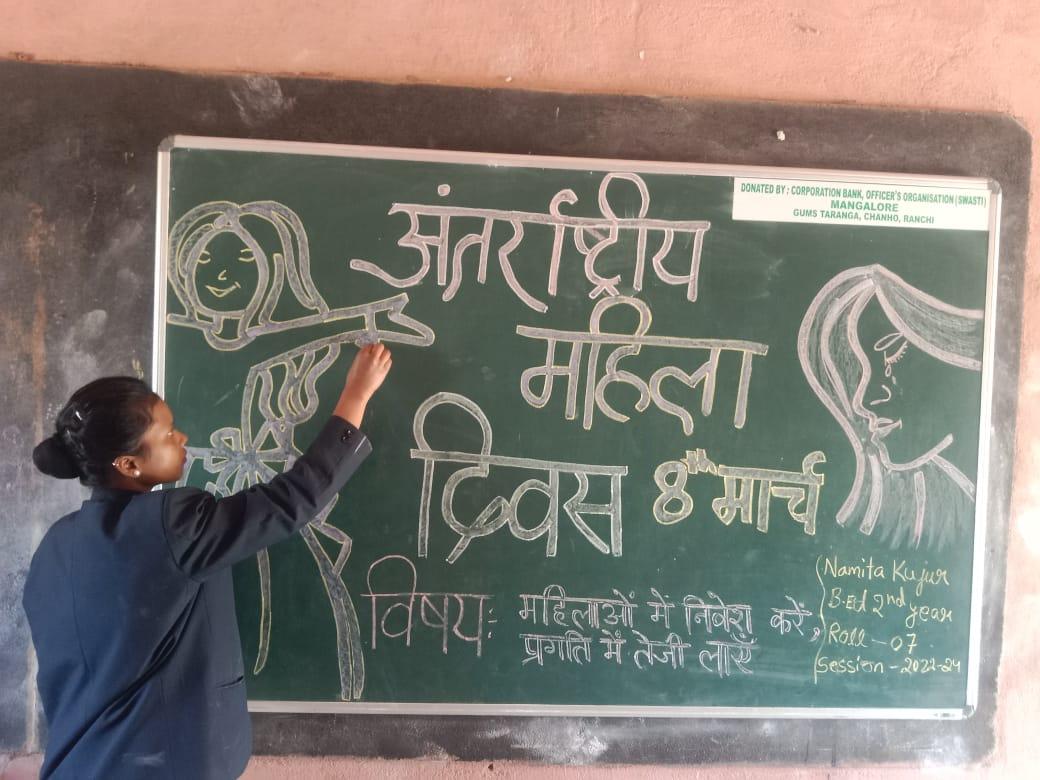 DONATED BY : CORPORATION BANK, OFFICER'S ORGANISATION (SWASTI)
MANGALORE
GUMS TARANGA, CHANHO, RANCHI
अंतर्राष्ट्रीय
महिला
दिवस 8th मार्च
विषय: महिलाओं में निवेश करें,
प्रगति में तेजी लाएँ
Namita Kujur
B.Ed 2nd year
Roll - 07
Session - 2022-24